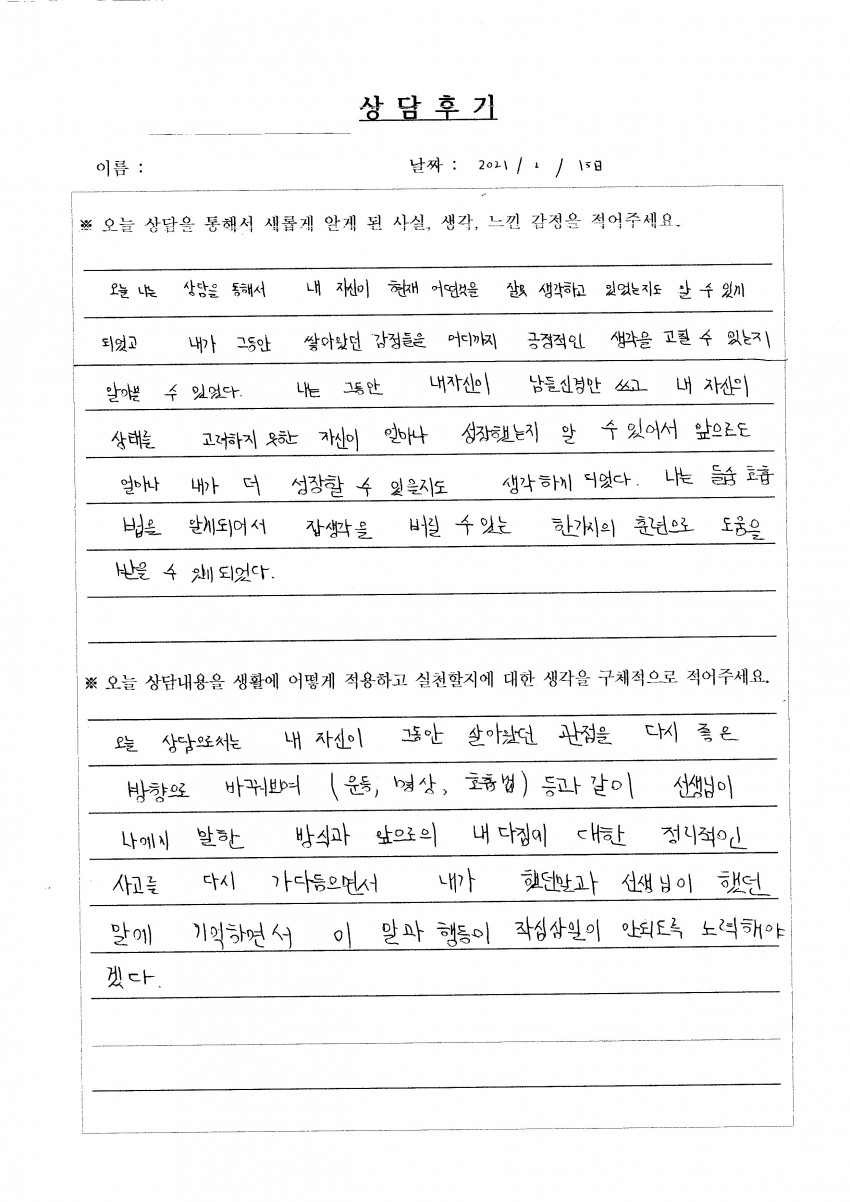 상 담 후 기
이름 : 날짜 : 2021 / 2 / 15일
※ 오늘 상담을 통해서 새롭게 알게 된 사실, 생각, 느낀 감정을 적어주세요.
오늘 나는 상담을 통해서 내 자신이 현재 어떤것을 잘못 생각하고 있었는지도 알 수 있게
되었고 내가 그동안 쌓아왔던 감정들을 어디까지 긍정적인 생각을 고칠 수 있는지
알아볼 수 있었다. 나는 그동안 내자신이 남들신경만 쓰고 내 자신의
상태를 고려하지 못한 자신이 얼마나 성장했는지 알 수 있어서 앞으로도
얼마나 내가 더 성장할 수 있을지도 생각하게 되었다. 나는 들숨 호흡
법을 알게되어서 잡생각을 버릴 수 있는 한가지의 훈련으로 도움을
받을 수 있게 되었다.
※ 오늘 상담내용을 생활에 어떻게 적용하고 실천할지에 대한 생각을 구체적으로 적어주세요.
오늘 상담으로서는 내 자신이 그동안 살아왔던 관점을 다시 좋은
방향으로 바꿔보며 (운동, 명상, 호흡법) 등과 같이 선생님이
나에게 말한 방식과 앞으로의 내 다짐에 대한 정리적인
사고를 다시 가다듬으면서 내가 했던말과 선생님이 했던
말에 기억하면서 이 말과 행동이 작심삼일이 안되도록 노력해야
겠다.